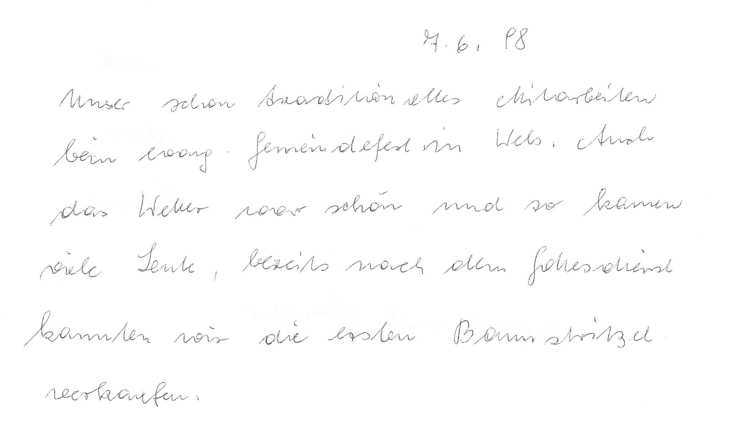 7.6.98
Unser schon traditionelles Mitarbeiten
beim evang. Gemeindefest in Wels. Auch
das Wetter war schön und so kamen
viele Leute, bereits nach dem Gottesdienst
konnten wir die ersten Baumstritzel
verkaufen.